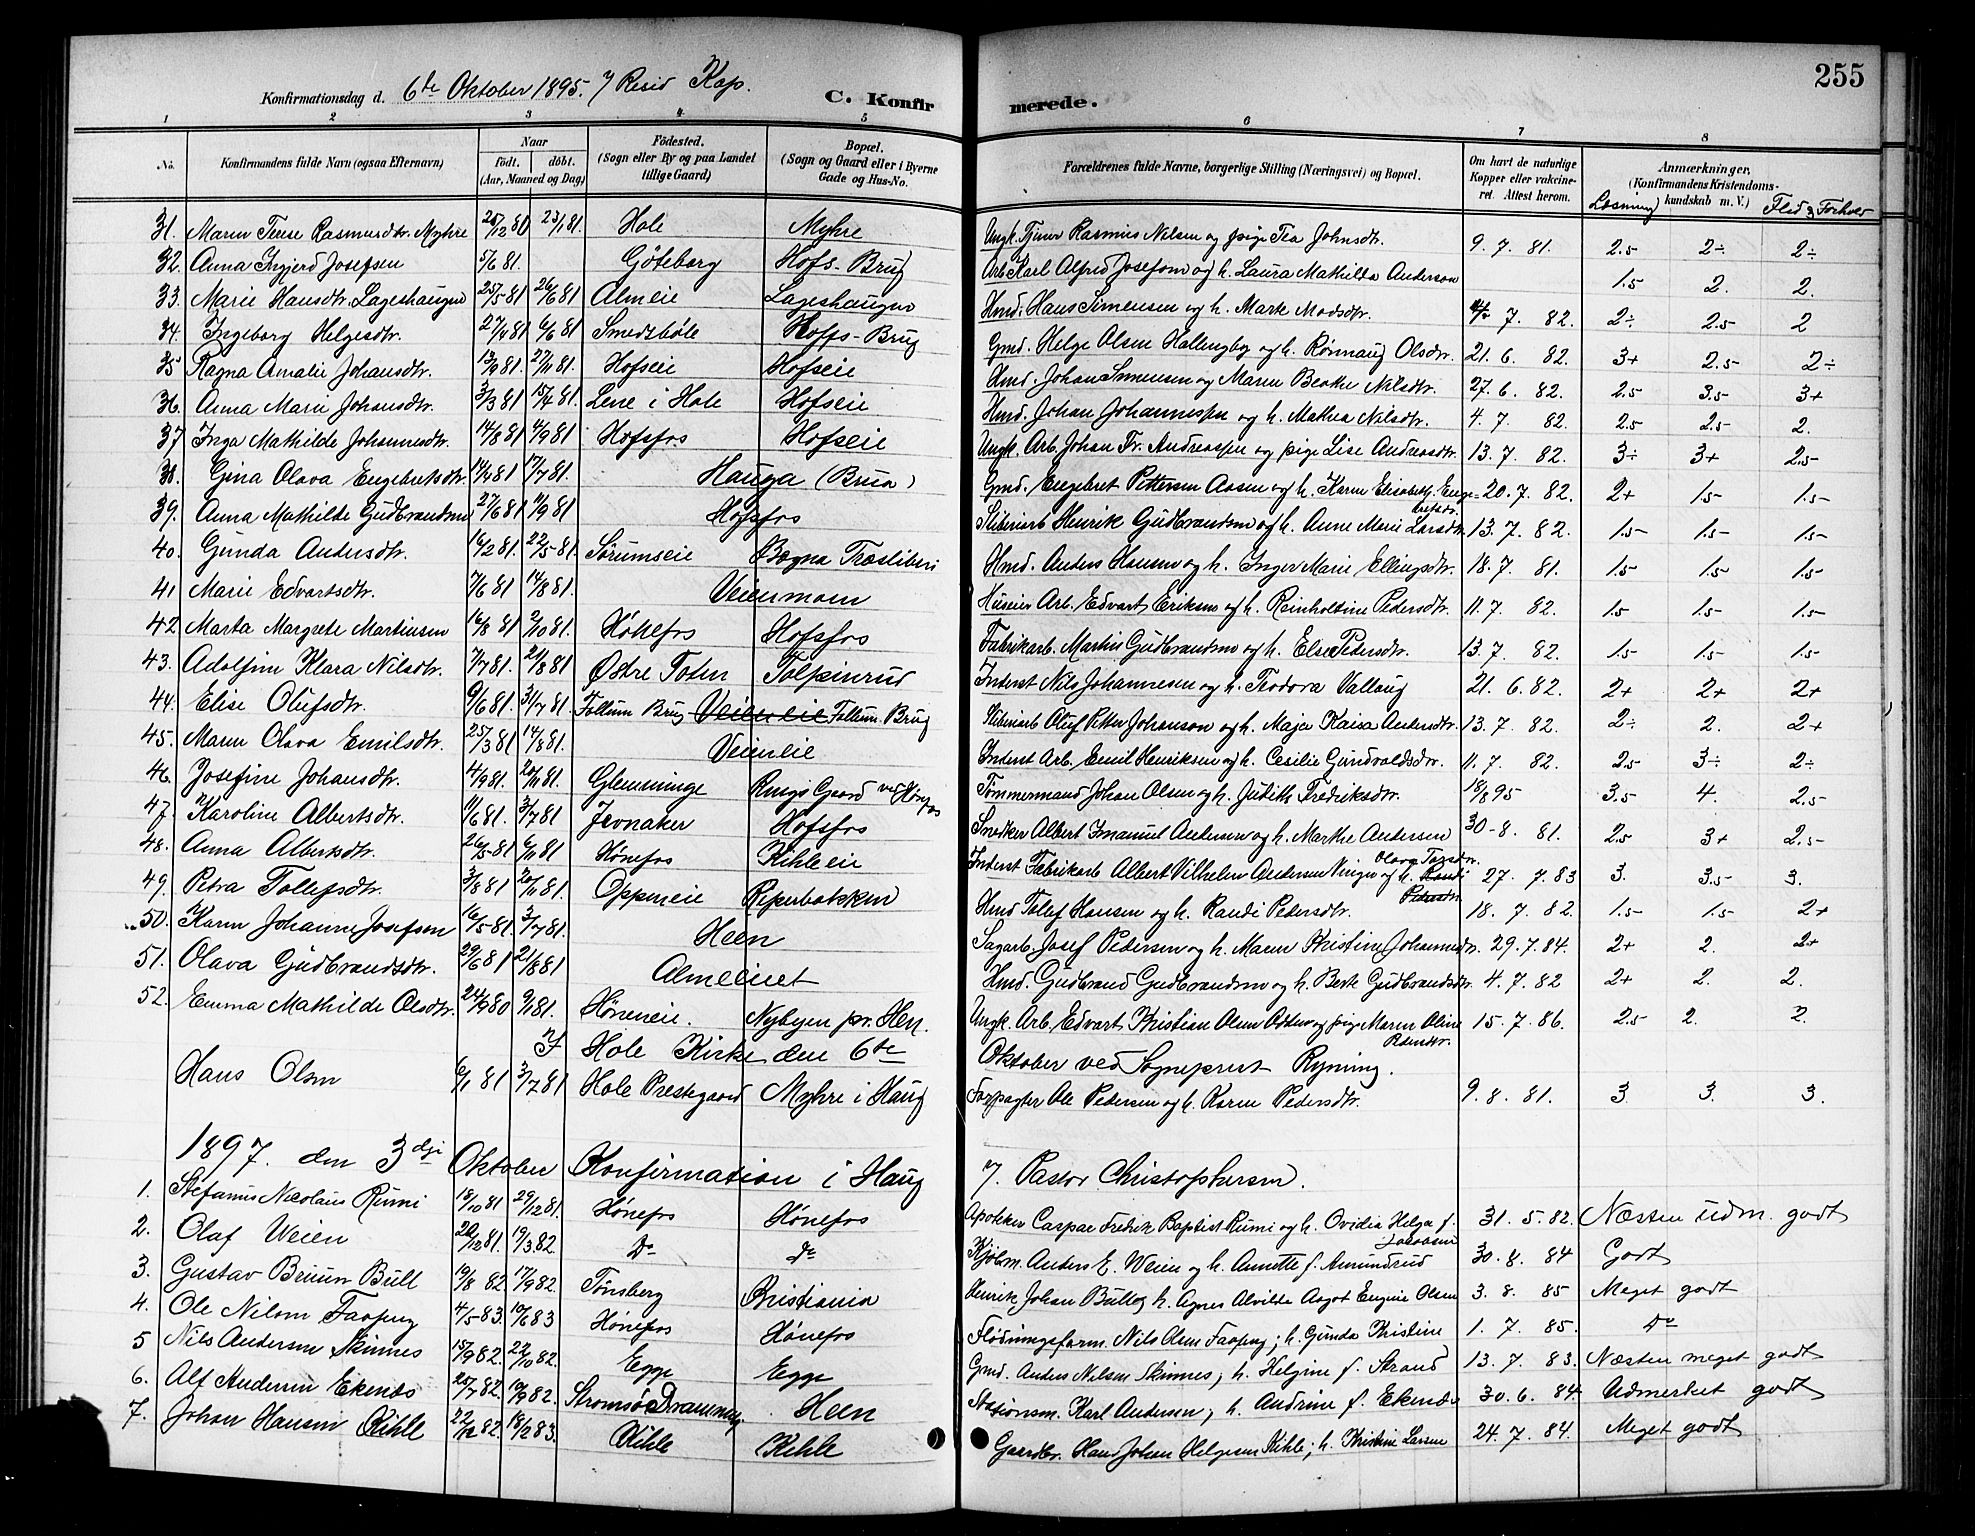 255
Konfirmationsdag d. 6te Oktober 1895. v/ Resid Kap.
C. Konfirmerede.
1 2 3 4 5 6 7 8
No. Konfirmandens fulde Navn (ogsaa Efternavn) Naar født. døbt. (Aar, Maaned og Dag) Fødested. (Sogn eller By og paa Landet tillige Gaard) Bopæl. (Sogn og Gaard eller i Byerne Gade og Hus-No. Forældrenes fulde Navne, borgerlige Stilling (Næringsvei) og Bopæl. Om havt de naturlige Kopper eller vakcineret. Attest herom. Anmærkninger, (Konfirmandens Kristendomskundskab m. V.) Læsning Flid & Forhold
31. Maren Terese Rasmusdtr. Myhre 20/12 80 23/1 81. Hole Myhre Ungk. Tjener Rasmus Nilsen og pige Tea Johnsdtr. 9. 7. 81. 2.5 2÷ 2÷
32. Anna Ingjerd Josefsen 5/6 81. Göteborg Hofs-Brug Arb. Karl Alfred Josefson og h. Laura Mathilda Anderson 1.5 2. 2.
33. Marie Hansdtr. Lageshaugen 25/5 81 26/6 81 Almeie Lageshaugen Hmd. Hans Simensen og h. Marte Madsdtr. 7. 82. 2÷ 2.5 2
34. Ingeborg Helgesdtr. 27/4 81 6/6 81 Smedsbøle Hoffs-Brug Gmd. Helge Olsen Hallingby og h. Rønnaug Olsdtr. 21. 6. 82. 3+ 2.5 2÷
35 Ragna Amalie Johansdtr. 13/9 81. 27/11 81. Hofseie Hofseie Hmd. Johan Simensen og Maren Beate Nilsdtr. 27. 6. 82. 2.5 3.5 3+
36. Anna Marie Johansdtr. 3/3 81 15/4 81. Lene i Hole Hofseie Hmd. Johan Johannessen og h. Mathea Nilsdtr. 4. 7. 82. 2.5 2.5 2.
37 Inga Mathilde Johannesdtr. 14/8 81 4/9 81 Hofsfos Hofseie Ungk. Arb. Johan Fr. Andreassen og pige Lise Andreasdtr. 13. 7. 82. 3÷ 3+ 2.5
38. Gina Olava Engebretsdtr. 14/4 81 17/7 81. Hauga (Brua) Gmd. Engebret Pettersen Aasen og h. Karen Elisabeth Engebretsdr. 20. 7. 82. 2+ 1.5 1.5
39. Anna Mathilde Gudbrandsen 27/6 81 11/9 81 Hofsfos Sliberiarb Henrik Gudbrandsen og h. Anne Marie Larsdtr. 13. 7. 82. 1.5 1.5 1.5
40. Gunda Andersdtr. 16/2 81. 22/5 81. Sørumseie Bægna Træsliberi Hmd. Anders Hansen og h. Inger Marie Ellingsdtr. 18. 7. 81. 1.5 1.5 1.5
41 Marie Edvartsdtr. 7/6 81 14/8 81. Veienmoen Huseier Arb. Edvart Eriksen og h. Reinholtine Pedersdtr. 11. 7. 82. 1.5 1.5 1.5
42 Marta Margrete Martinsen 16/8 81 2/10 81. Hønefos Hofsfos Fabrikarb. Martin Gudbrandsen og h. Else Pedersdtr. 13. 7. 82. 1.5 1.5 1.5
43. Adolfine Klara Nilsdtr. 7/7 81. 21/8 81 Østre Toten Tolpinrud Inderst Nils Johannesen og h. Teodora Vallaug 21. 6. 82. 2+ 2+ 2+
44. Elise Olufsdtr. 9/6 81. 31/7 81. Follum Brug Veieneie Follum Brug Sliberiarb Oluf Petter Johanson og h. Maja Kaisa Andersdtr. 13. 7. 82. 2÷ 2. 2+
45. Maren Olava Emilsdtr. 25/3 81 14/8 81. Veieneie Inderst Arb. Emil Henriksen og h. Cesilie Gundvaldsdtr. 11. 7. 82. 2.5 3÷ 2÷
46. Josefine Johansdtr. 4/9 81. 20/11 81. Glemminge Rings Gaard ved Hønefos Tømmermand Johan Olsen og h. Judith Fredriksdtr. 18/8 95 3.5 4. 2.5
47. Karoline Albertsdtr. 11/6 81. 3/7 81 Jevnaker Hofsfos Snedker Albert Imanuel Andersen og h. Marthe Andersen 30-8. 81. 2.5 3+ 2.5
48. Anna Albertsdtr. 26/5 81 6/11 81 Hønefos Kihleeie Inderst Fabrikarb Albert Vilhelm Andersen Ringen og h. Randi Pedersdtr. Olava Torsdtr. 27. 7. 83 3. 3.5 3.
49. Petra Tollefsdtr. 3/8 81 20/11 81. Oppeneie Reperbakken Hmd Tolef Hansen og h. Randi Pedersdtr. 18. 7. 82. 1.5 1.5 2+
50. Karen Johanne Josefsen 16/5 81. 3/7 81. Heen Sagarb. Josef Pedersen og h. Maren Kristine Johannesdtr. 29. 7. 84. 2+ 2. 2+
51. Olava Gudbrandsdtr. 29/6 81 21/8 81 Almeeiet Hmd. Gudbrand Gudbrandsen og h. Berte Gudbrandsdtr. 4. 7. 82 2+ 2. 2.
52. Emma Mathilde Olsdtr. 24/9 80 9/1 81. Høneneie. Nybyen pr. Hen. Ungk. Arb. Edvart Kristian Olsen og pige Maren Oline Pedersdtr. 15. 7. 86. 2.5 2. 2.
I Hole Kirke den 6te Oktober ved Sogneprest Ryning.
Hans Olsen 6/1 81 3/7 81 Hole Prestegaard Myhre i Haug Forpagter Ole Pedersen og h. Karen Pedersdtr. 9. 8. 81. 3 3. 3.
1897. den 3dje Oktober Konfirmation i Haug v. Pastor Christophersen.
1. Stefanus Nicolaus Rumi 18/10 81 29/12 81. Hønefos Hønefos Apoteker Caspar Fredrik Baptist Rumi og h. Ovidia Helga f. Jacobsen 31. 5. 82. Næsten udm. godt
2. Olaf Weien 20/12 81. 19/3 82. Do do Kjøbm. Anders E. Weien og h. Annette f. Amundrud 30. 8. 84 Godt
3. Gustav Bruun Bull 19/8 82 17/9 82. Tønsberg Kristiania Henrik Johan Bull og h. Agnes Alvilde Aagot Eugenie Olsen 3. 8. 85 Meget godt
4. Ole Nilsen Faopeng 4/5 83. 10/6 83 Hønefos Hønefos Flødningsform. Nils Olsen Faopeng; h. Gunda Kristine 1. 7. 85. Do
5 Nils Andersen Skinnes 15/9 82. 22/10 82. Egge Egge Gmd. Anders Nilsen Skinnes; h. Helgine f. Strand 13. 7. 83. Næsten meget godt
6. Alf Andersen Ekenæs 25/7 82. 10/9 82. Strømsø Drammen. Heen Stationsm. Karl Andersen; h. Andrine f. Ekenæs 30. 6. 84. Udmerket godt
7. Johan Hansen Kihle 22/12 82. 18/2 83. Kihle Kihle Gaardbr. Hans Johan Helgesen Kihle; h. Kristine Larsen 24. 7. 84. Meget godt